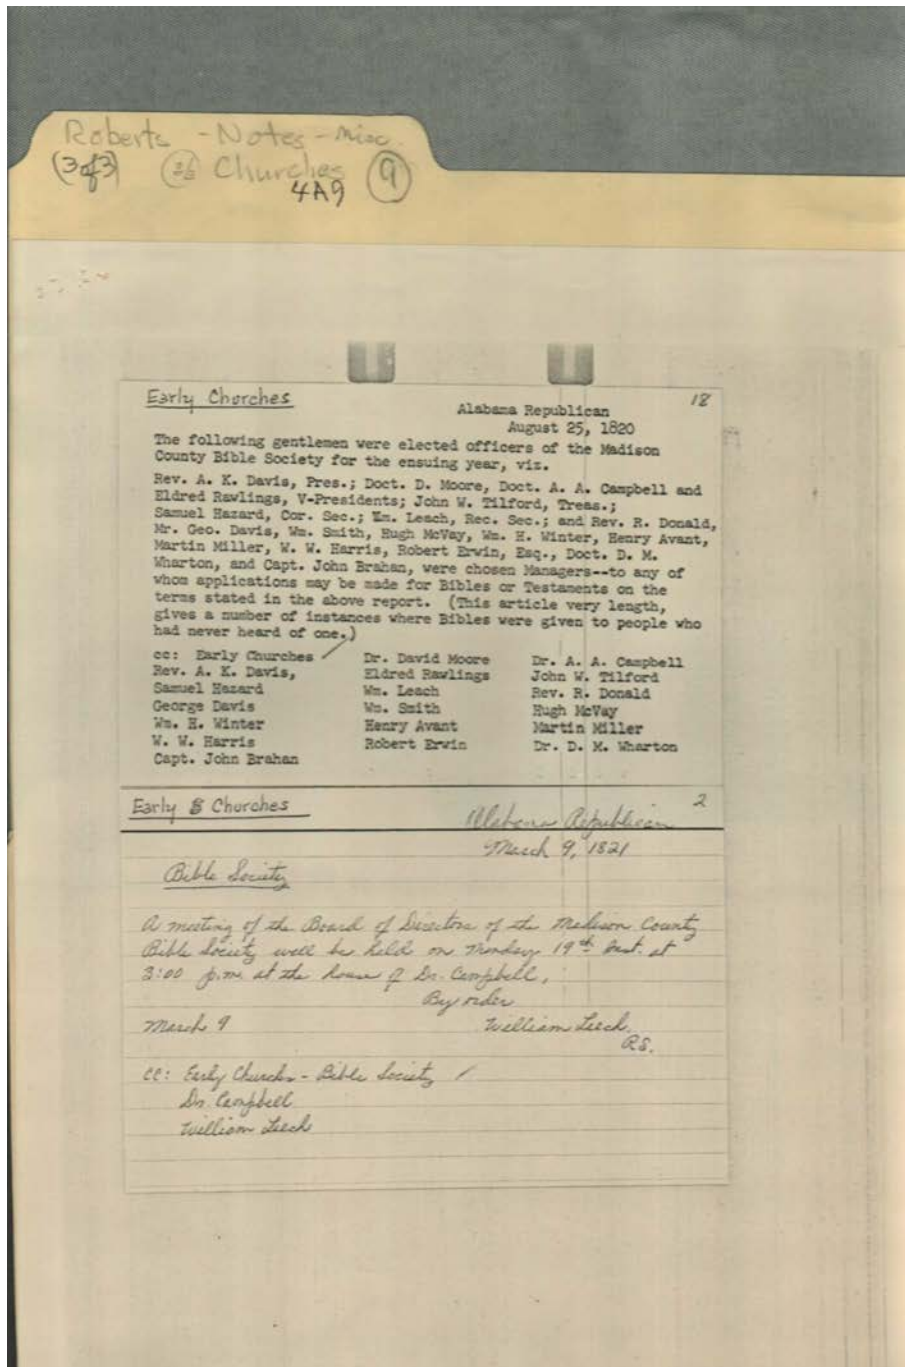 Roberts - Notes - Misc.
(3 of 3) Churches 9
4A9
Early Churches 18
Alabama Republican
August 25, 1820
The following gentlemen were elected officers of the Madison
County Bible Society for the ensuing year, viz.
Rev. A. K. Davis, Pres.; Doct. D. Moore, Doct. A. A. Campbell and
Eldred Rawlings, V-Presidents; John W. Tilford, Treas.;
Samuel Hazard, Cor. Sec.; Wm. Leach, Rec. Sec.; and Rev. R. Donald,
Mr. Geo. Davis, Wm. Smith, Hugh McVay, Wm. H. Winter, Henry Avant,
Martin Miller, W. W. Harris, Robert Erwin, Esq., Doct. D. M.
Wharton, and Capt. John Brahan, were chosen Managers--to any of
whom applications may be made for Bibles or Testaments on the
terms stated in the above report. (This article very length,
gives a number of instances where Bibles were given to people who
had never heard of one.)
cc: Early Churches Dr. David Moore Dr. A. A. Campbell
Rev. A. K. Davis, Eldred Rawlings John W. Tilford
Samuel Hazard Wm. Leach Rev. R. Donald
George Davis Wm. Smith Hugh McVay
Wm. H. Winter Henry Avant Martin Miller
W. W. Harris Robert Erwin Dr. D. M. Wharton
Capt. John Brahan
Early Churches 2
Alabama Republican
March 9, 1821
Bible Society
A meeting of the Board of Directors of the Madison County
Bible Society will be held on Monday 19th inst. at
3:00 p.m. at the house of Dr. Campbell,
By order
March 9 William Leech.
R.S.
cc: Early Churches - Bible Society
Dr. Campbell
William Leech